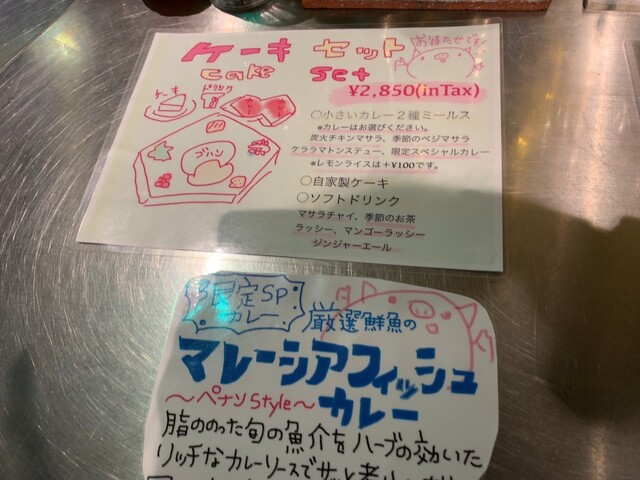 ケーキ セット
cake set
お待たせです
¥2,850(inTax)
ケーキ
ドリンク
ゴハン
○小さいカレー2種ミールス
*カレーはお選びください。
炭火チキンマサラ、季節のベジマサラ
ケララマトンステュー、限定スペシャルカレー
*レモンライスは+¥100です。
○自家製ケーキ
○ソフトドリンク
マサラチャイ、季節のお茶
ラッシー、マンゴーラッシー
ジンジャーエール
限定SP
カレー
厳選鮮魚の
マレーシアフィッシュ
〜ペナンStyle〜
カレー
脂ののった旬の魚介をハーブの効いた
リッチなカレーソースでサッと